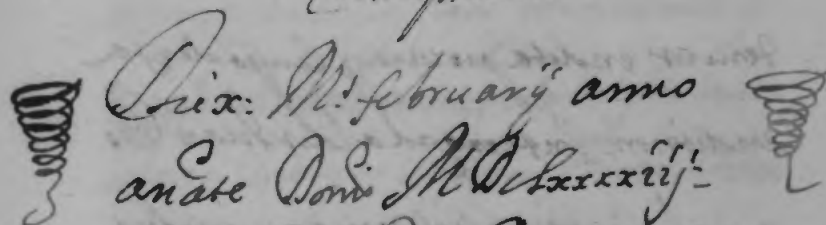 Die x: Ms februarij anno
anate Domi MDclxxxxiij